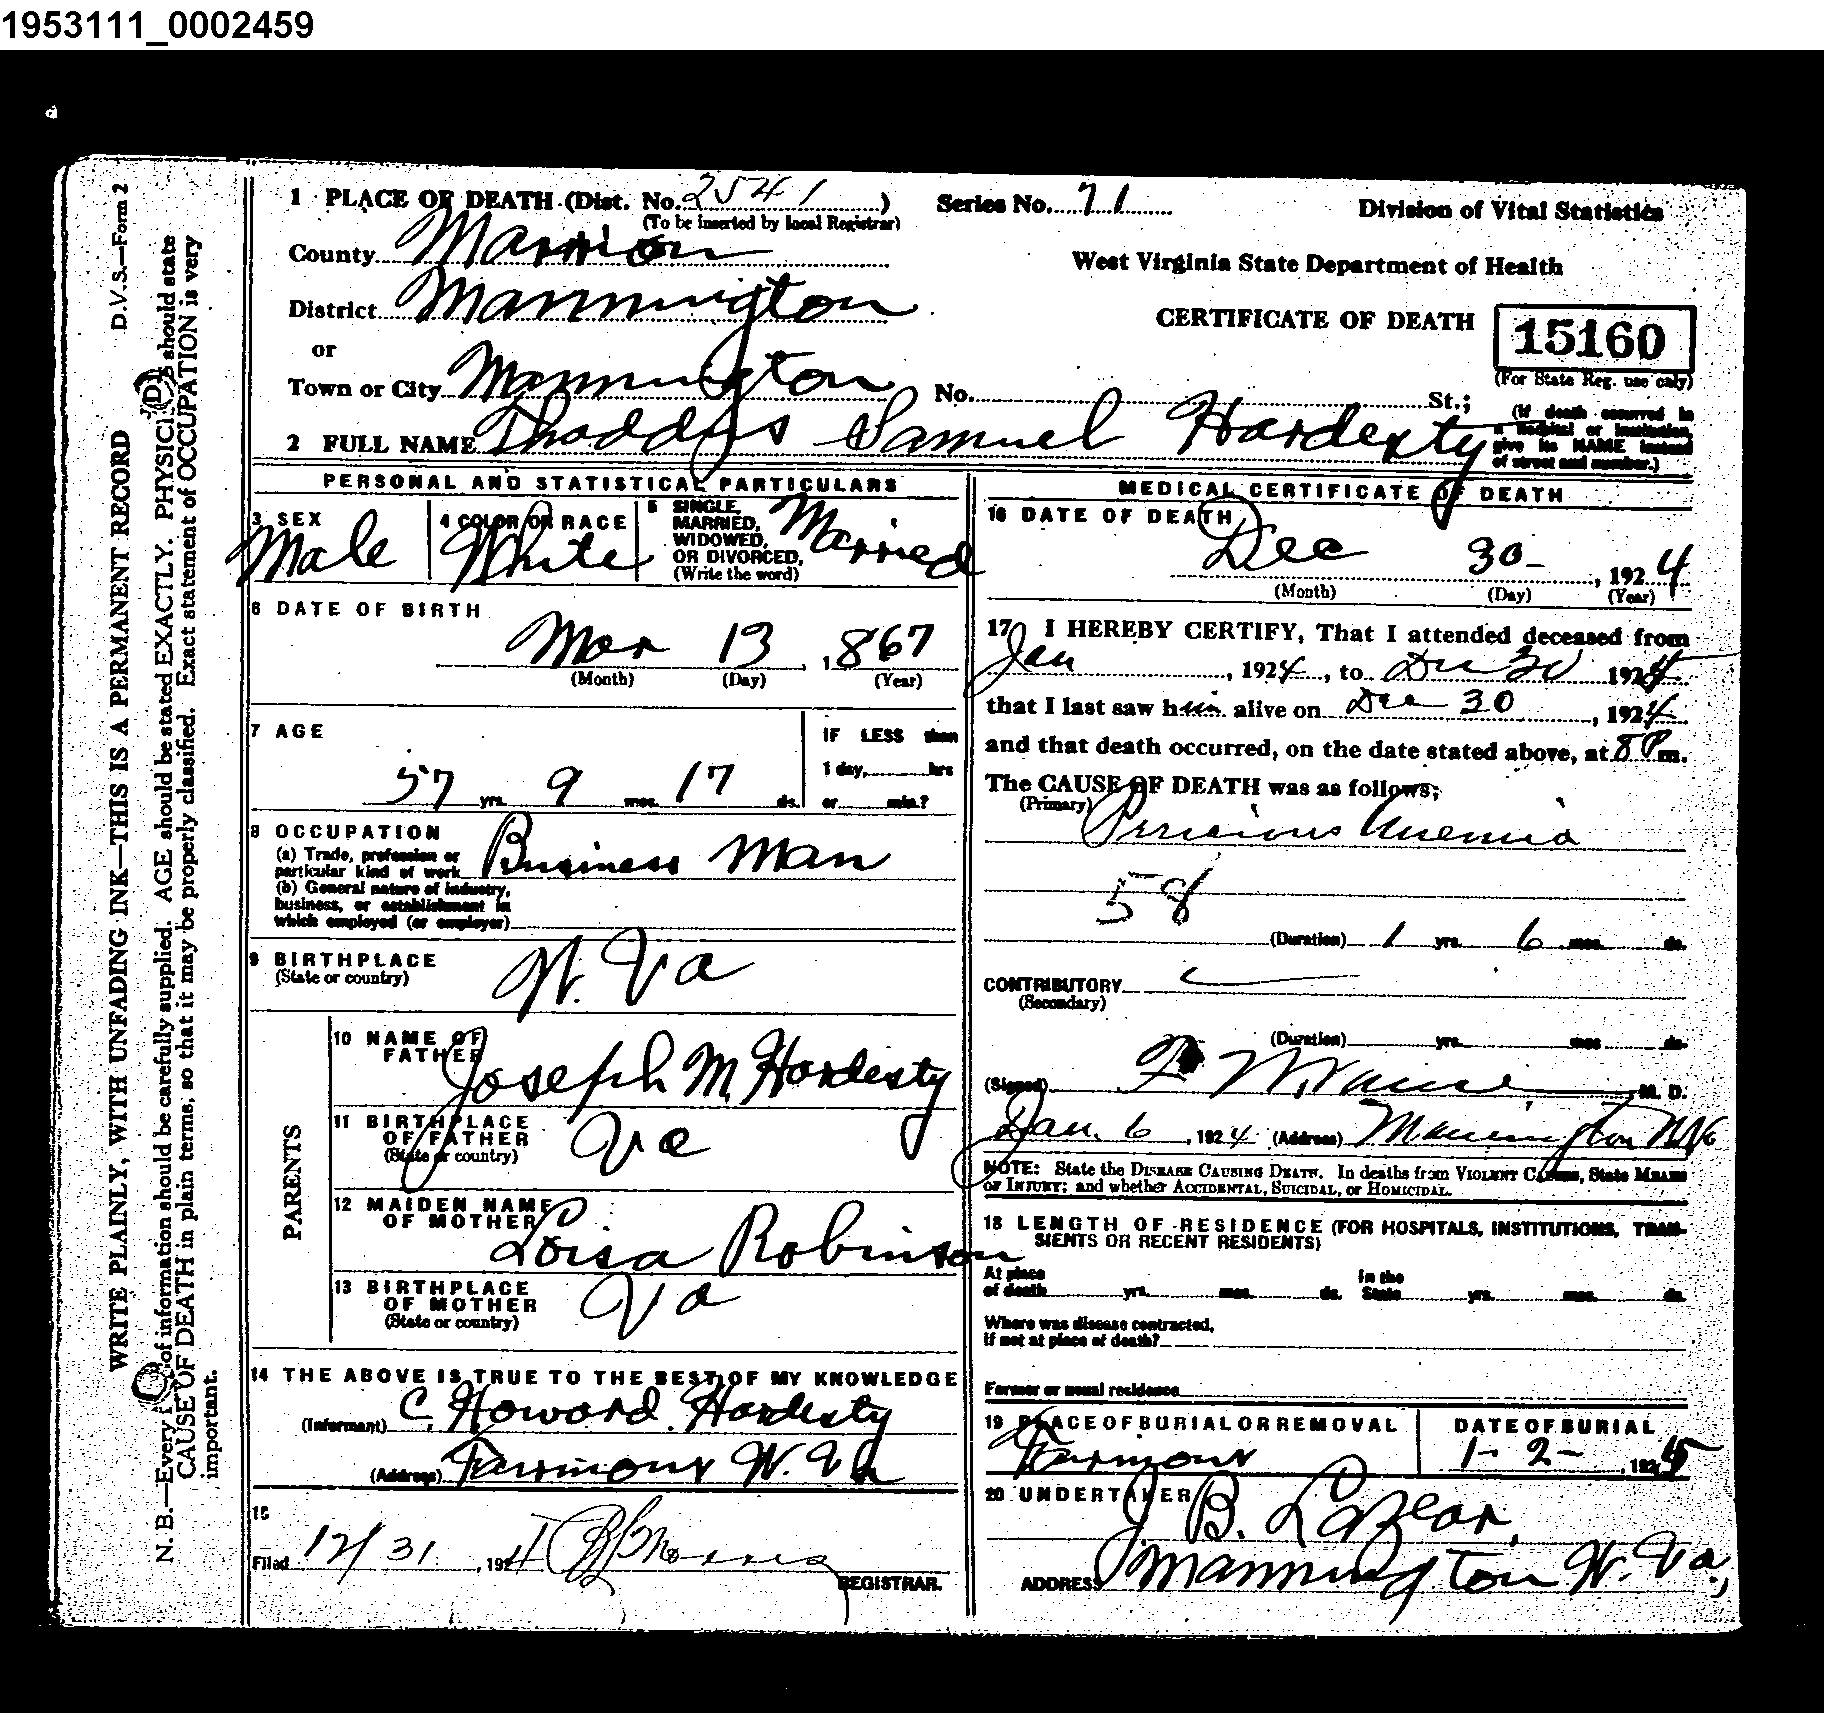 1953111_0002459
D.V.S.—Form 2
WRITE PLAINLY, WITH UNFADING INK—THIS IS A PERMANENT RECORD
N. B.—Every of information should be carefully supplied. AGE should be stated EXACTLY. PHYSICI should state
CAUSE OF DEATH in plain terms, so that it may be properly classified. Exact statement of OCCUPATION is very
important.
1 PLACE OF DEATH (Dist. No. 2541 )
(To be inserted by local Registrar)
Series No. 71
Division of Vital Statistics
County Marion
West Virginia State Department of Health
District Mannington
CERTIFICATE OF DEATH
15160
(For State Reg. use only)
or
Town or City Mannington No. St.;
(If death occurred in
a Hospital or Institution,
give its NAME instead
of street and number.)
2 FULL NAME Thaddys Samuel Hardesty
PERSONAL AND STATISTICAL PARTICULARS
3 SEX
Male
4 COLOR OR RACE
White
5 SINGLE,
MARRIED,
WIDOWED,
OR DIVORCED,
(Write the word)
Married
6 DATE OF BIRTH
Mar 13 , 1867
(Month) (Day) (Year)
7 AGE
57 yrs. 9 mos. 17 ds.
IF LESS than
1 day, hrs
or min.?
8 OCCUPATION
(a) Trade, profession or
particular kind of work Business Man
(b) General nature of industry,
business, or establishment in
which employed (or employer)
9 BIRTHPLACE
(State or country)
W. Va
PARENTS
10 NAME OF
FATHER
Joseph M. Hardesty
11 BIRTHPLACE
OF FATHER
(State or country)
Va
12 MAIDEN NAME
OF MOTHER
Loisa Robinson
13 BIRTHPLACE
OF MOTHER
(State or country)
Va
14 THE ABOVE IS TRUE TO THE BEST OF MY KNOWLEDGE
(Informant) C. Howard Hardesty
(Address) Fairmont W. Va
15
Filed 12/31 , 1924
REGISTRAR.
MEDICAL CERTIFICATE OF DEATH
16 DATE OF DEATH
Dec 30- , 1924
(Month) (Day) (Year)
17 I HEREBY CERTIFY, That I attended deceased from
Jan , 1924 , to Dec 30 1924
that I last saw him alive on Dec 30 , 1924
and that death occurred, on the date stated above, at 8 P m.
The CAUSE OF DEATH was as follows;
(Primary)
Pernicious Anemia
58
(Duration) 1 yrs. 6 mos. ds.
CONTRIBUTORY
(Secondary)
(Duration) yrs. mos. ds.
(Signed) M. D.
Jan. 6 , 1924 (Address) Mannington W Va
NOTE: State the DISEASE CAUSING DEATH. In deaths from VIOLENT CAUSES, State MEANS
OF INJURY; and whether ACCIDENTAL, SUICIDAL, or HOMICIDAL.
18 LENGTH OF RESIDENCE (FOR HOSPITALS, INSTITUTIONS, TRAN-
SIENTS OR RECENT RESIDENTS)
At place
of death yrs. mos. ds.
In the
State yrs. mos. ds.
Where was disease contracted,
if not at place of death?
Former or usual residence
19 PLACE OF BURIAL OR REMOVAL
Fairmont
DATE OF BURIAL
1-2- , 1925
20 UNDERTAKER
J. B. Lazear,
ADDRESS Mannington W. Va.,